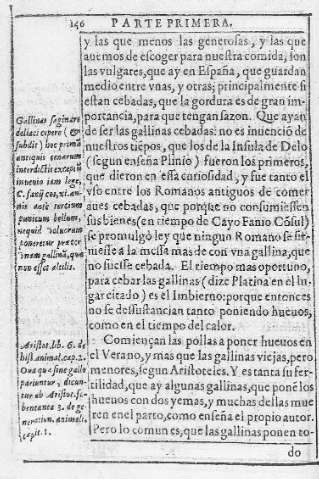 156
PARTE PRIMERA.
y las que menos las generosas, y las que
auemos de escoger para nuestra comida, son
las vulgares, que ay en España, que guardan
medio entre vnas, y otras; principalmente si
estan cebadas, que la gordura es de gran im-
portancia, para que tengan sazon. Que ayan
de ser las gallinas cebadas: no es inuenciõ de
nuestros tiẽpos, que los de la Insula de Delo
(segun enseña Plinio) fueron los primeros,
que dieron en esta curiosidad, y fue tanto el
vso entre los Romanos antiguos de comer
aues cebadas, que porque no consumiessen
sus bienes (en tiempo de Cayo Fanio Cõsul)
se promulgó ley que ningun Romano se sir-
uiesse a la messa mas de con vna gallina, que
no fuesse cebada. El tiempo mas oportuno,
para cebar las gallinas (dize Platina en el lu-
gar citado) es el Imbierno: porque entonces
no se dessustancian tanto poniendo hueuos,
como en el tiempo del calor.
Comiençan las pollas a poner hueuos en
el Verano, y mas que las gallinas viejas, pero
menores, segun Aristoteles. Y es tanta su fer-
tilidad, que ay algunas gallinas, que ponẽ los
hueuos con dos yemas, y muchas dellas mue
ren en el parto, como enseña el propio autor.
Pero lo comun es, que las gallinas ponen to-
do
Gallinas saginare
deliaci cepere (&
subdit) hoc primũ
antiquis cenarum
interdictis exceptũ
inuenio iam lege,
C. fanij cos, xi. an-
nis ante tertium
punicum bellum,
nequid volucrum
poneretur præter
vnam gallinã, quæ
non esset altilis.
Aristot. lib. 6. de
hist. animal. cap. 2.
Oua quæ sine gallo
pariuntur, dicun-
tur ab Aristot.
3. de ge-
neration. animali.
capit. 1.